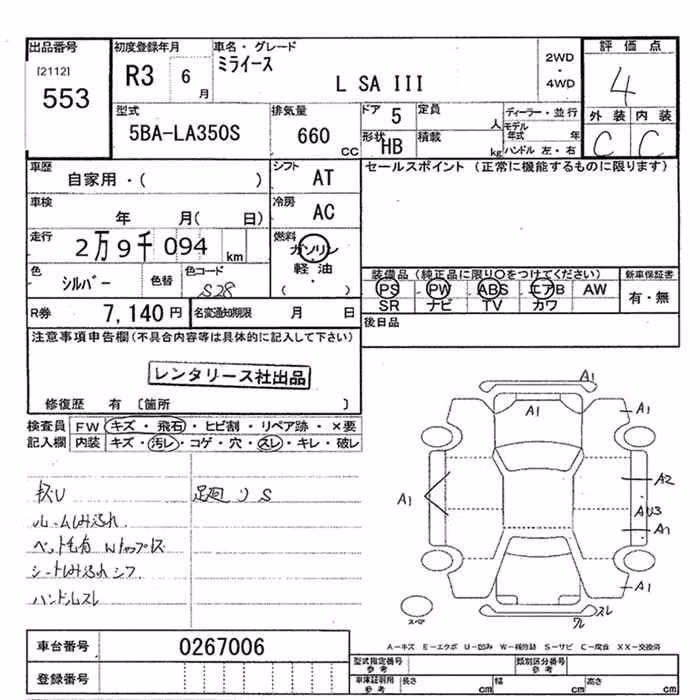 出品番号 初度登録年月 車名・グレード 2WD・4WD 評価点
[2112] 553
R3 6月 ミライース
L SA III
4
型式 5BA-LA350S 排気量 660 CC
ドア 5 定員 人 ディーラー・並行
モデル年式 年
形状 HB 積載 kg ハンドル 左・右
外装 内装
C C
車歴 自家用・( ) シフト AT
セールスポイント (正常に機能するものに限ります)
車検 年 月( 日) 冷房 AC
走行 2万9千094 km 燃料 ガソリン 軽油 ( )
色 シルバー 色替 色コード S28
装備品 (純正品に限り○をつけてください) 新車保証書
PS PW ABS エアB AW 有・無
SR ナビ TV カワ
R券 7,140円 名変通知期限 月 日
後日品
注意事項申告欄(不具合内容等は具体的に記入して下さい)
レンタリース社出品
修復歴 有 〔箇所 〕
検査員記入欄 FW キズ・飛石・ヒビ割・リペア跡・×要
内装 キズ・汚レ・コゲ・穴・スレ・キレ・破レ
足廻りS
ルームしみ汚れ
シートしみ汚れシワ
ハンドルスレ
A1
A1
A1
A1
A2
A1
A1
スレ
スペア
A-キズ E-エクボ U-凹み W-補修跡 S-サビ C-腐食 XX-交換済
車台番号 0267006
登録番号
型式指定番号 参考 類別区分番号 参考
車庫証明用 参考 長さ cm 幅 cm 高さ cm